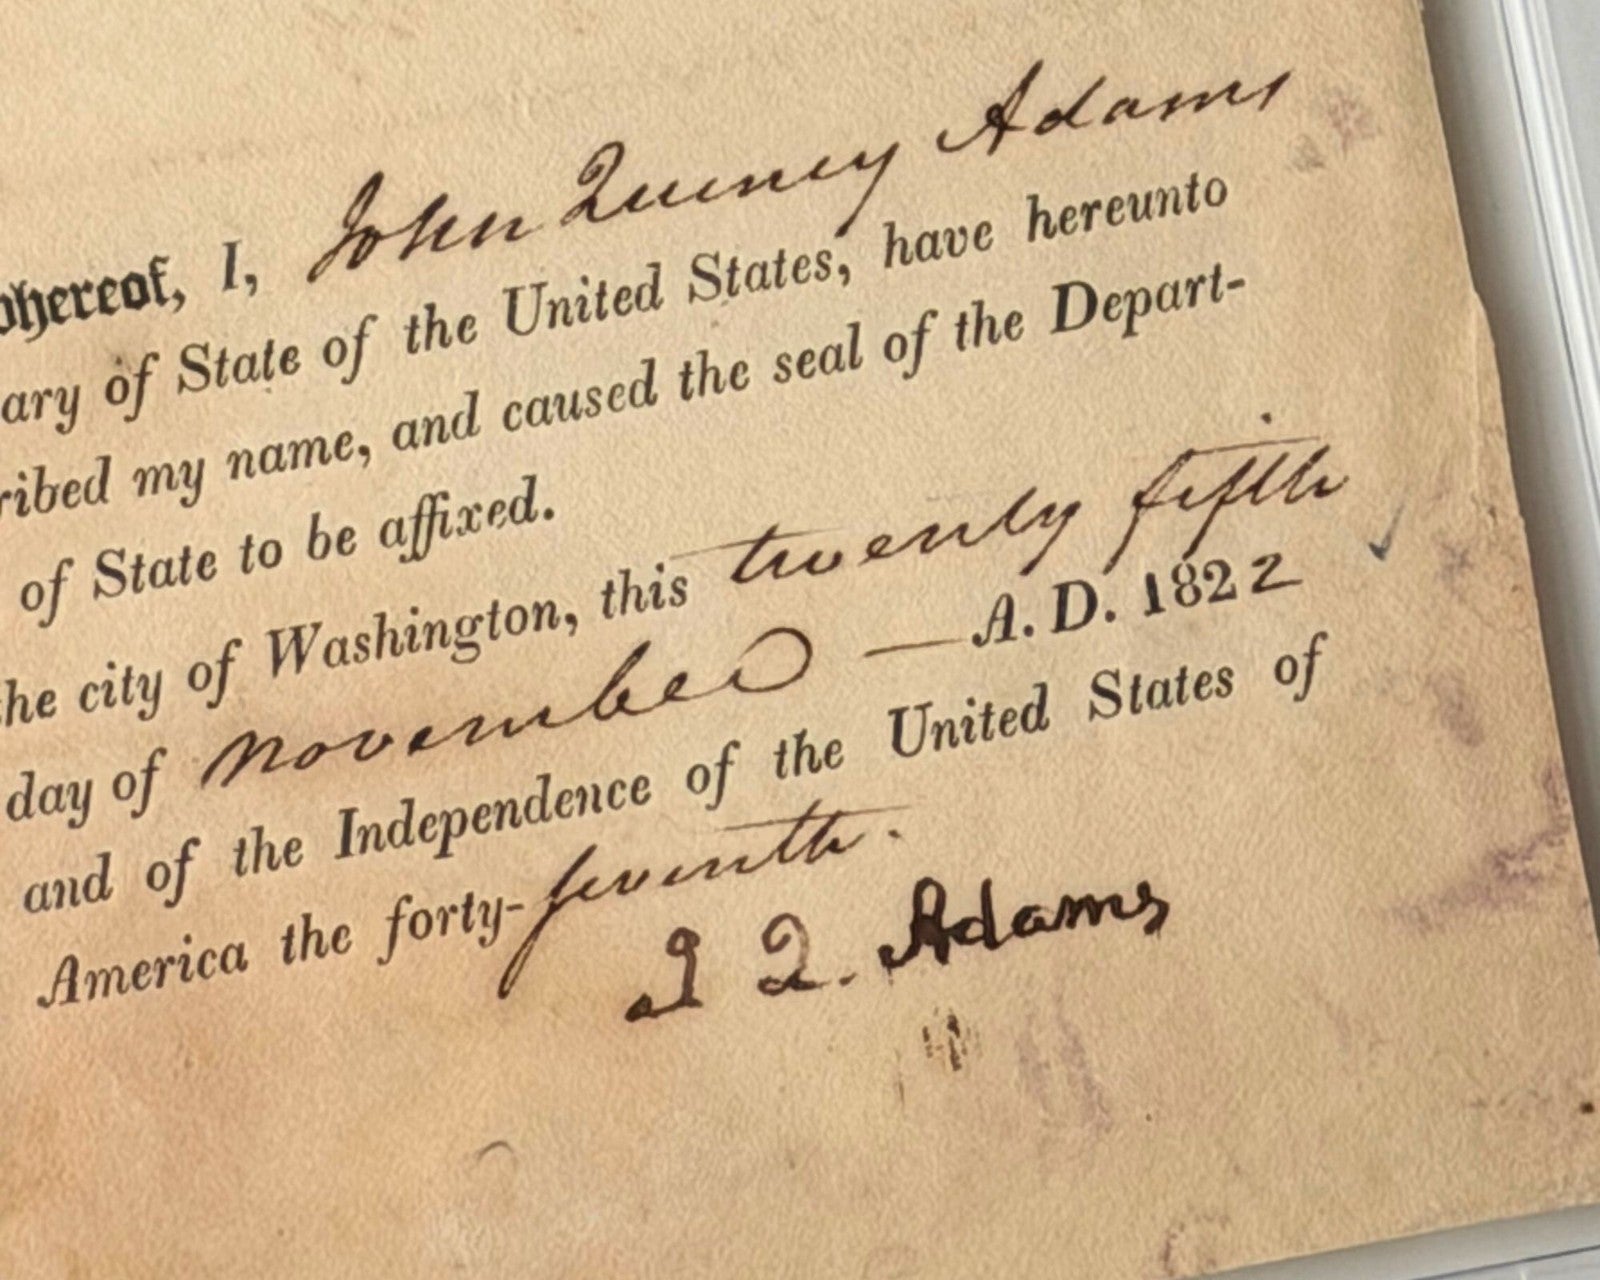 whereof, I, John Quincy Adams
ary of State of the United States, have hereunto
ribed my name, and caused the seal of the Depart-
of State to be affixed.
the city of Washington, this twenty fifth
day of November — A. D. 1822
and of the Independence of the United States of
America the forty-seventh.
J Q. Adams